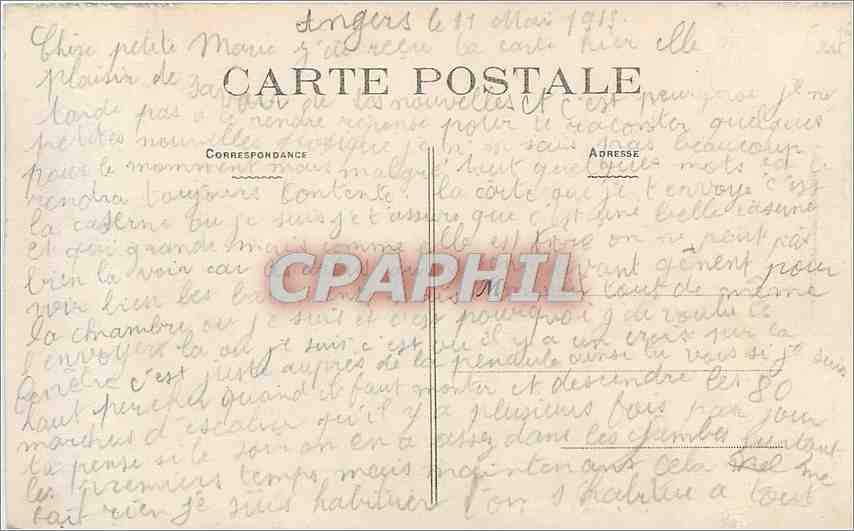 Angers le 11 Mai 1913.
Chère petite Marie j'ai reçue ta carte hier elle
plaisir de savoir de tes nouvelles et c'est pourquoi je ne
CARTE POSTALE
tarde pas a te rendre reponse pour te raconter quelques
petites nouvelles quoique je n'en sais pas beaucoup
CORRESPONDANCE
ADRESSE
pour le momment mais malgré tout quelques mots ça te
rendra toujours contente. la carte que je t'envoye c'est
la caserne ou je suis je t'assure que c'est une belle caserne
et qui grande mais comme elle est on ne peut pas
bien la voir car devant gênent pour
CPAPHIL
voir bien les tout de même
la chambre ou je suit et c'est pourquoi j'ai voulu te
l'envoyer la ou je suis c'est ou il y a un croix sur la
fenêtre c'est juste auprès de la pendule ainsi tu vois si je suis
haut percher quand il faut monter et descendre les 80
marches d'escalier qu'il y a plusieurs fois par jour
ta pense si le soir on en a assez dans les jambes surtout
les premiers temps mais maintenant cela me
fait rien je suis habituer l'on s'habitue a tout